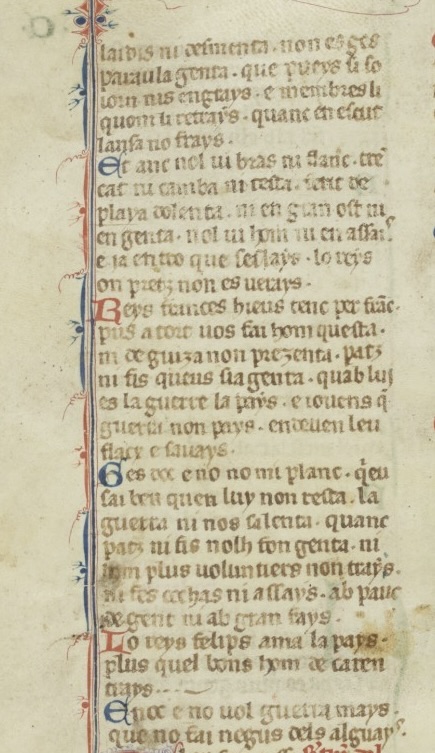 laidis ni desmenta · non es ges
paraula genta · que pueys li so
iorn nis engrays · e membres li
quom li retrays · quanc en escut
lansa no frays ·
Et anc nol ui bras ni flanc · tre
cat ni camba ni testa · ferit de
playa dolenta · ni en gran ost ni
en genta · nol ui hom ni en assai
e ia entro que seslays · lo reys
on pretz non es uerays ·
Reys frances hieus tenc per franc ·
pus a tort uos fai hom questa ·
ni de guiza non prezenta · patz
ni fis queus sia genta · quab luj
es la guerre la pays · e iouens q̃
guerra non pays · endeuen leu
flacx e sauays ·
Ges doc e no no mi planc · q̃eu
sai ben quen luy non resta · la
guerra ni nos salenta · quanc
patz ni fis nolh fon genta · ni
hom plus voluntiers non trays ·
ni fes cochas ni assays · ab pauc
de gent ni ab gran fays ·
Lo reys felips ama la pays ·
plus quel bons hom de caren
trays
En oc e no uol guerra mays ·
que no fai negus dels alguays ·